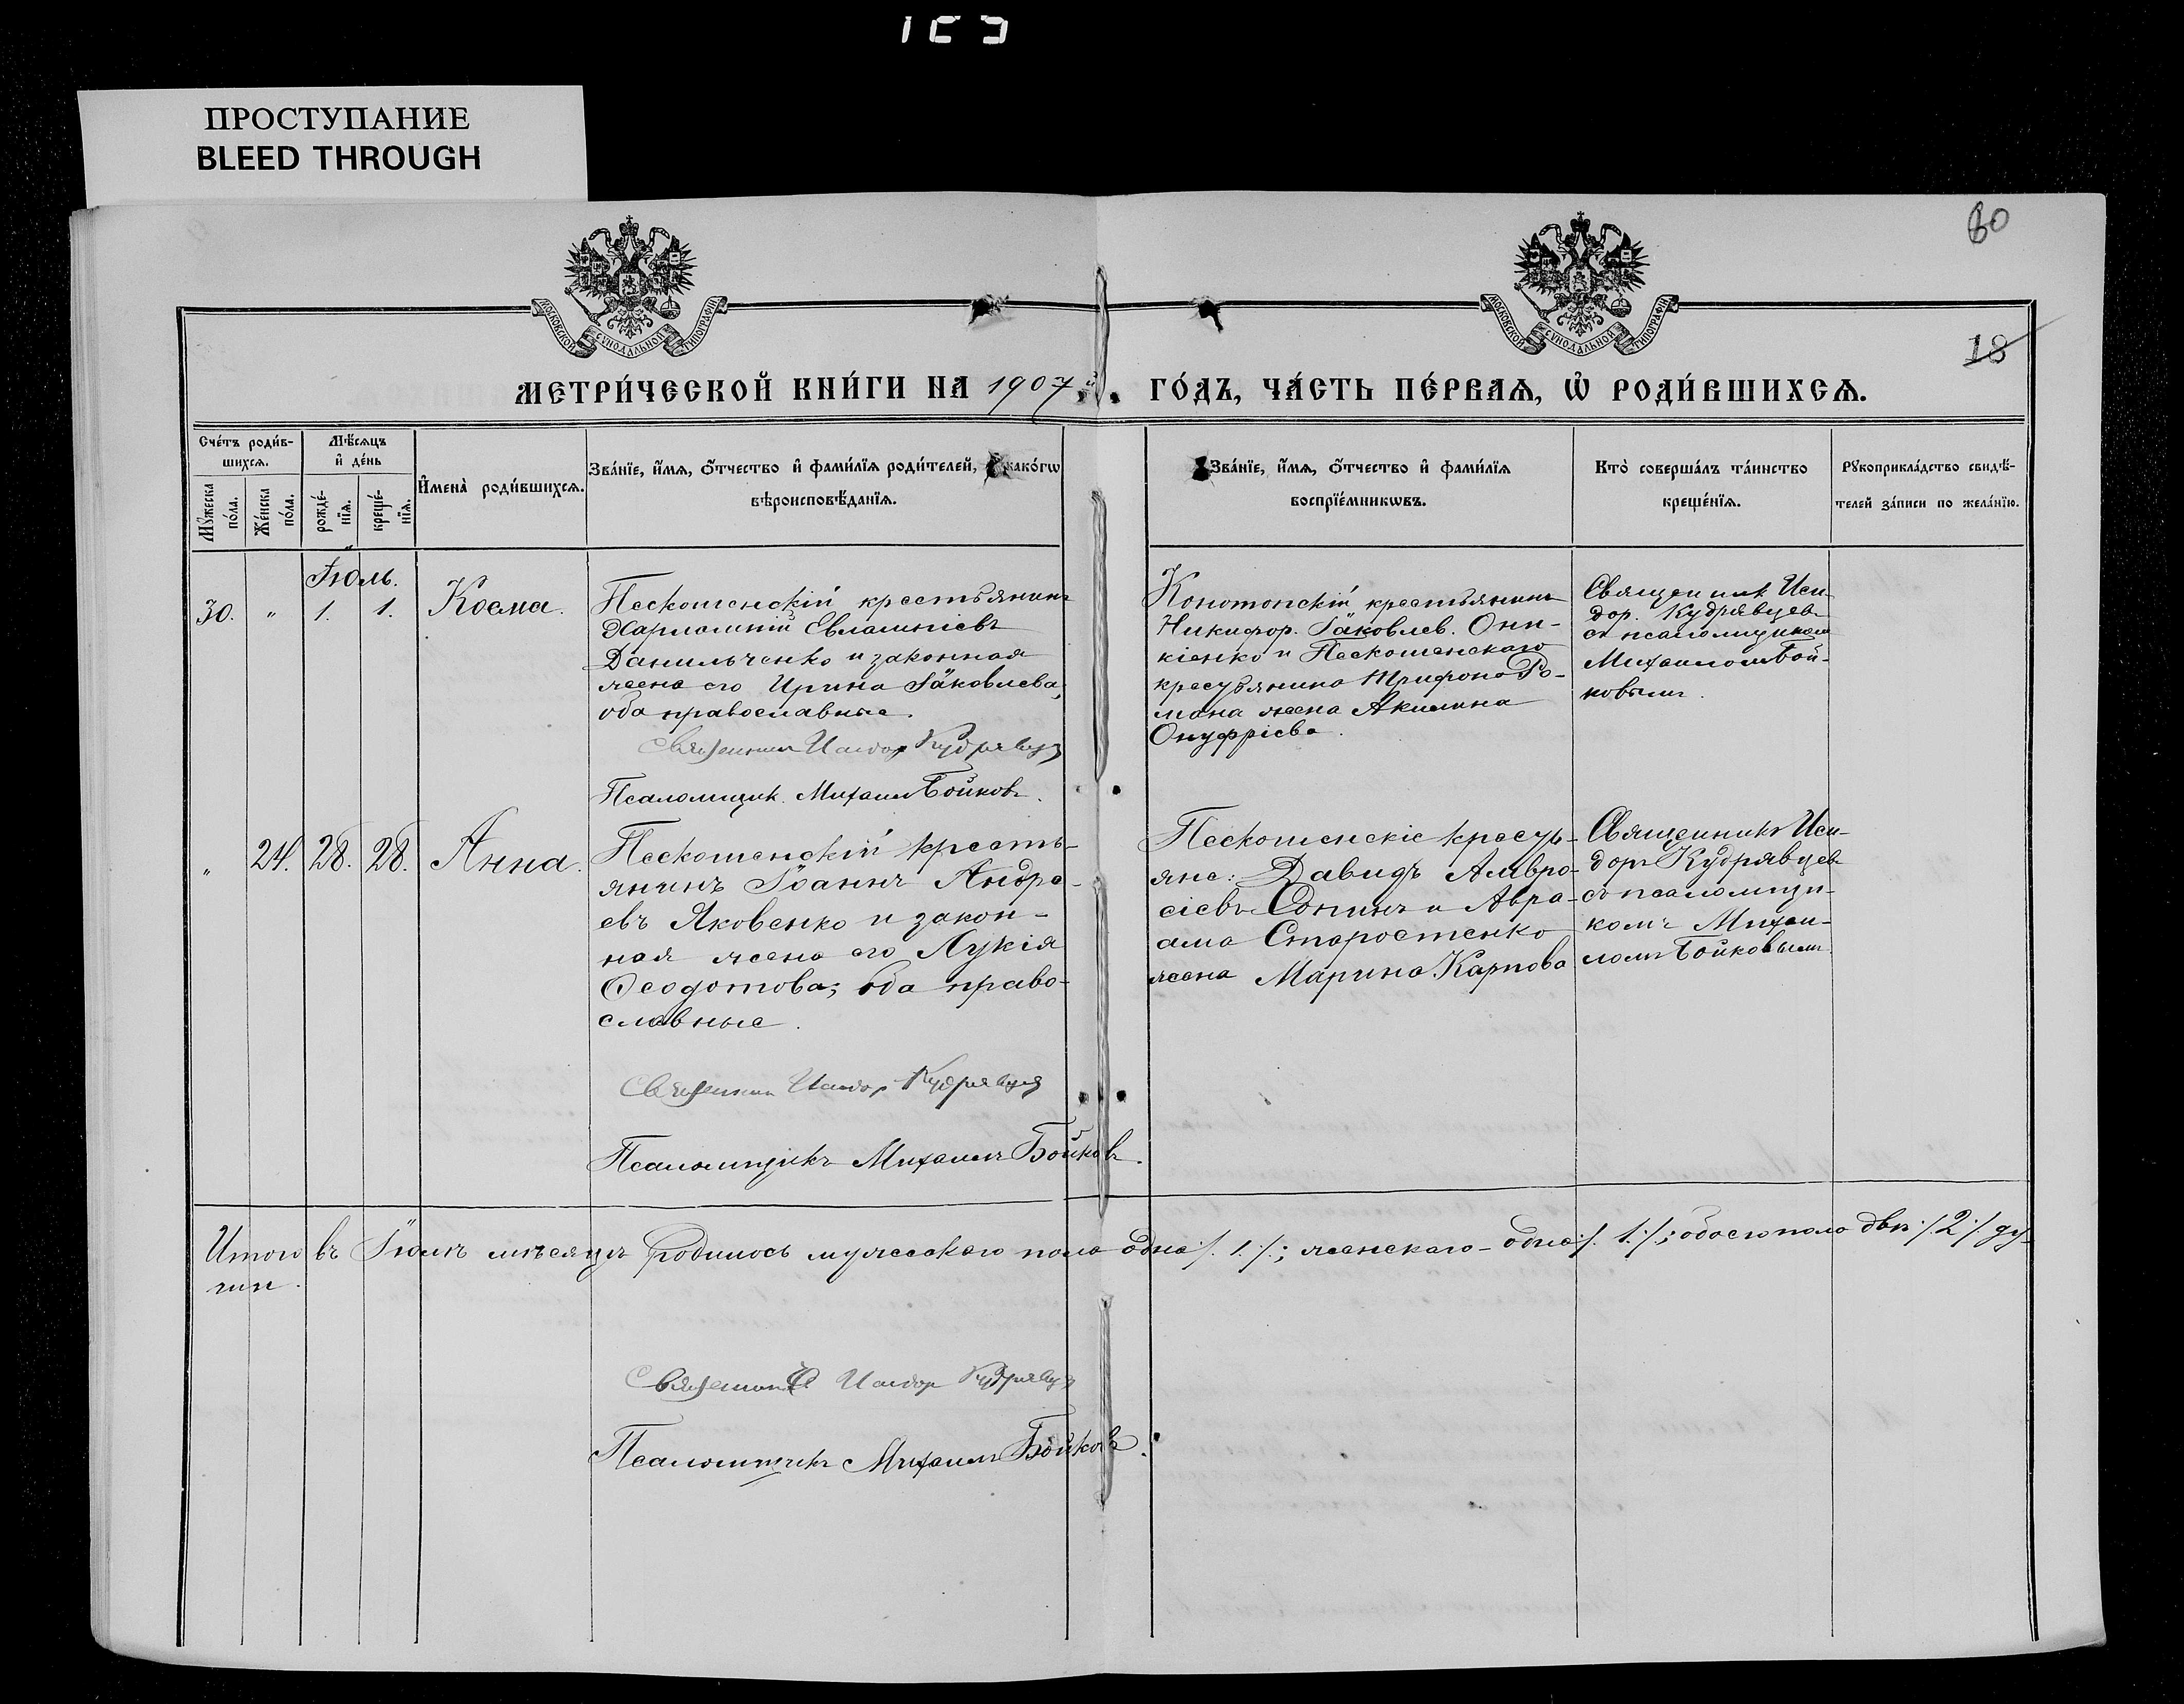 ПРОСТУПАНИЕ
BLEED THROUGH
60
18
МОСКОВСКОЙ СѴНОДАЛЬНОЙ ТИПОГРАФІИ
МОСКОВСКОЙ СѴНОДАЛЬНОЙ ТИПОГРАФІИ
МЕТРИ́ЧЕСКОЙ КНИ́ГИ НА 1907 ГО́ДЪ, ЧА́СТЬ ПЕ́РВАѦ, Ѡ҆ РОДИ́ВШИХСѦ.
Сче́тъ роди́в-
шихсѧ.
Мꙋ́жеска по́ла.
Же́нска по́ла.
Мѣ́сѧцъ
и҆ де́нь
рожде́-
нїѧ.
креще́-
нїѧ.
И҆мена̀ роди́вшихсѧ.
Зва́нїе, и҆́мѧ, ѻ҆́тчество и҆ фами́лїѧ роди́телей, како́гѡ
вѣроисповѣ́данїѧ.
Зва́нїе, и҆́мѧ, ѻ҆́тчество и҆ фами́лїѧ
воспрїе́мникѡвъ.
Кто̀ соверша́лъ та́инство
креще́нїѧ.
Рꙋкоприкла́дство свидѣ́-
телей за́писи по жела́нїю.
Іюль.
30. " 1. 1. Косма.
Пескошенскій крестьянинъ
Харлампій Евлампіевъ
Данильченко и законная
жена его Ирина Іаковлева,
оба православные.
Священникъ Исидоръ Кудрявцевъ
Псаломщик. Михаилъ Бойковъ.
Конотопскій крестьянинъ
Никифор. Іаковлев. Они-
кіенко и Пескошенскаго
крестьянина Трифона Ро-
мана жена Акилина
Онуфріева.
Священник Иси-
дор. Кудрявцев
съ псаломщиком
Михаиломъ Бой-
ковымъ.
" 24. 28. 28. Анна.
Пескошенскій кресть-
янинъ Іоаннъ Андре-
евъ Яковенко и закон-
ная жена его Лукія
Ѳеодотова; оба право-
славные.
Священникъ Исидоръ Кудрявцевъ
Псаломщикъ Михаилъ Бойковъ.
Пескошенскіе кресть-
яне: Давидъ Амвро-
сіевъ Сопинъ и Авра-
ама Старостенко
жена Марина Карпова
Священникъ Иси-
доръ Кудрявцев
съ псаломщи-
комъ Михаи-
ломъ Бойковымъ.
Итого въ Іюлѣ мѣсяцѣ родилось мужескаго пола одна ./. 1 ./.; женскаго - одна ./. 1 ./.; обоего пола двѣ ./. 2 ./. ду-
ши.
Священникъ Исидоръ Кудрявцевъ
Псаломщикъ Михаилъ Бойковъ.